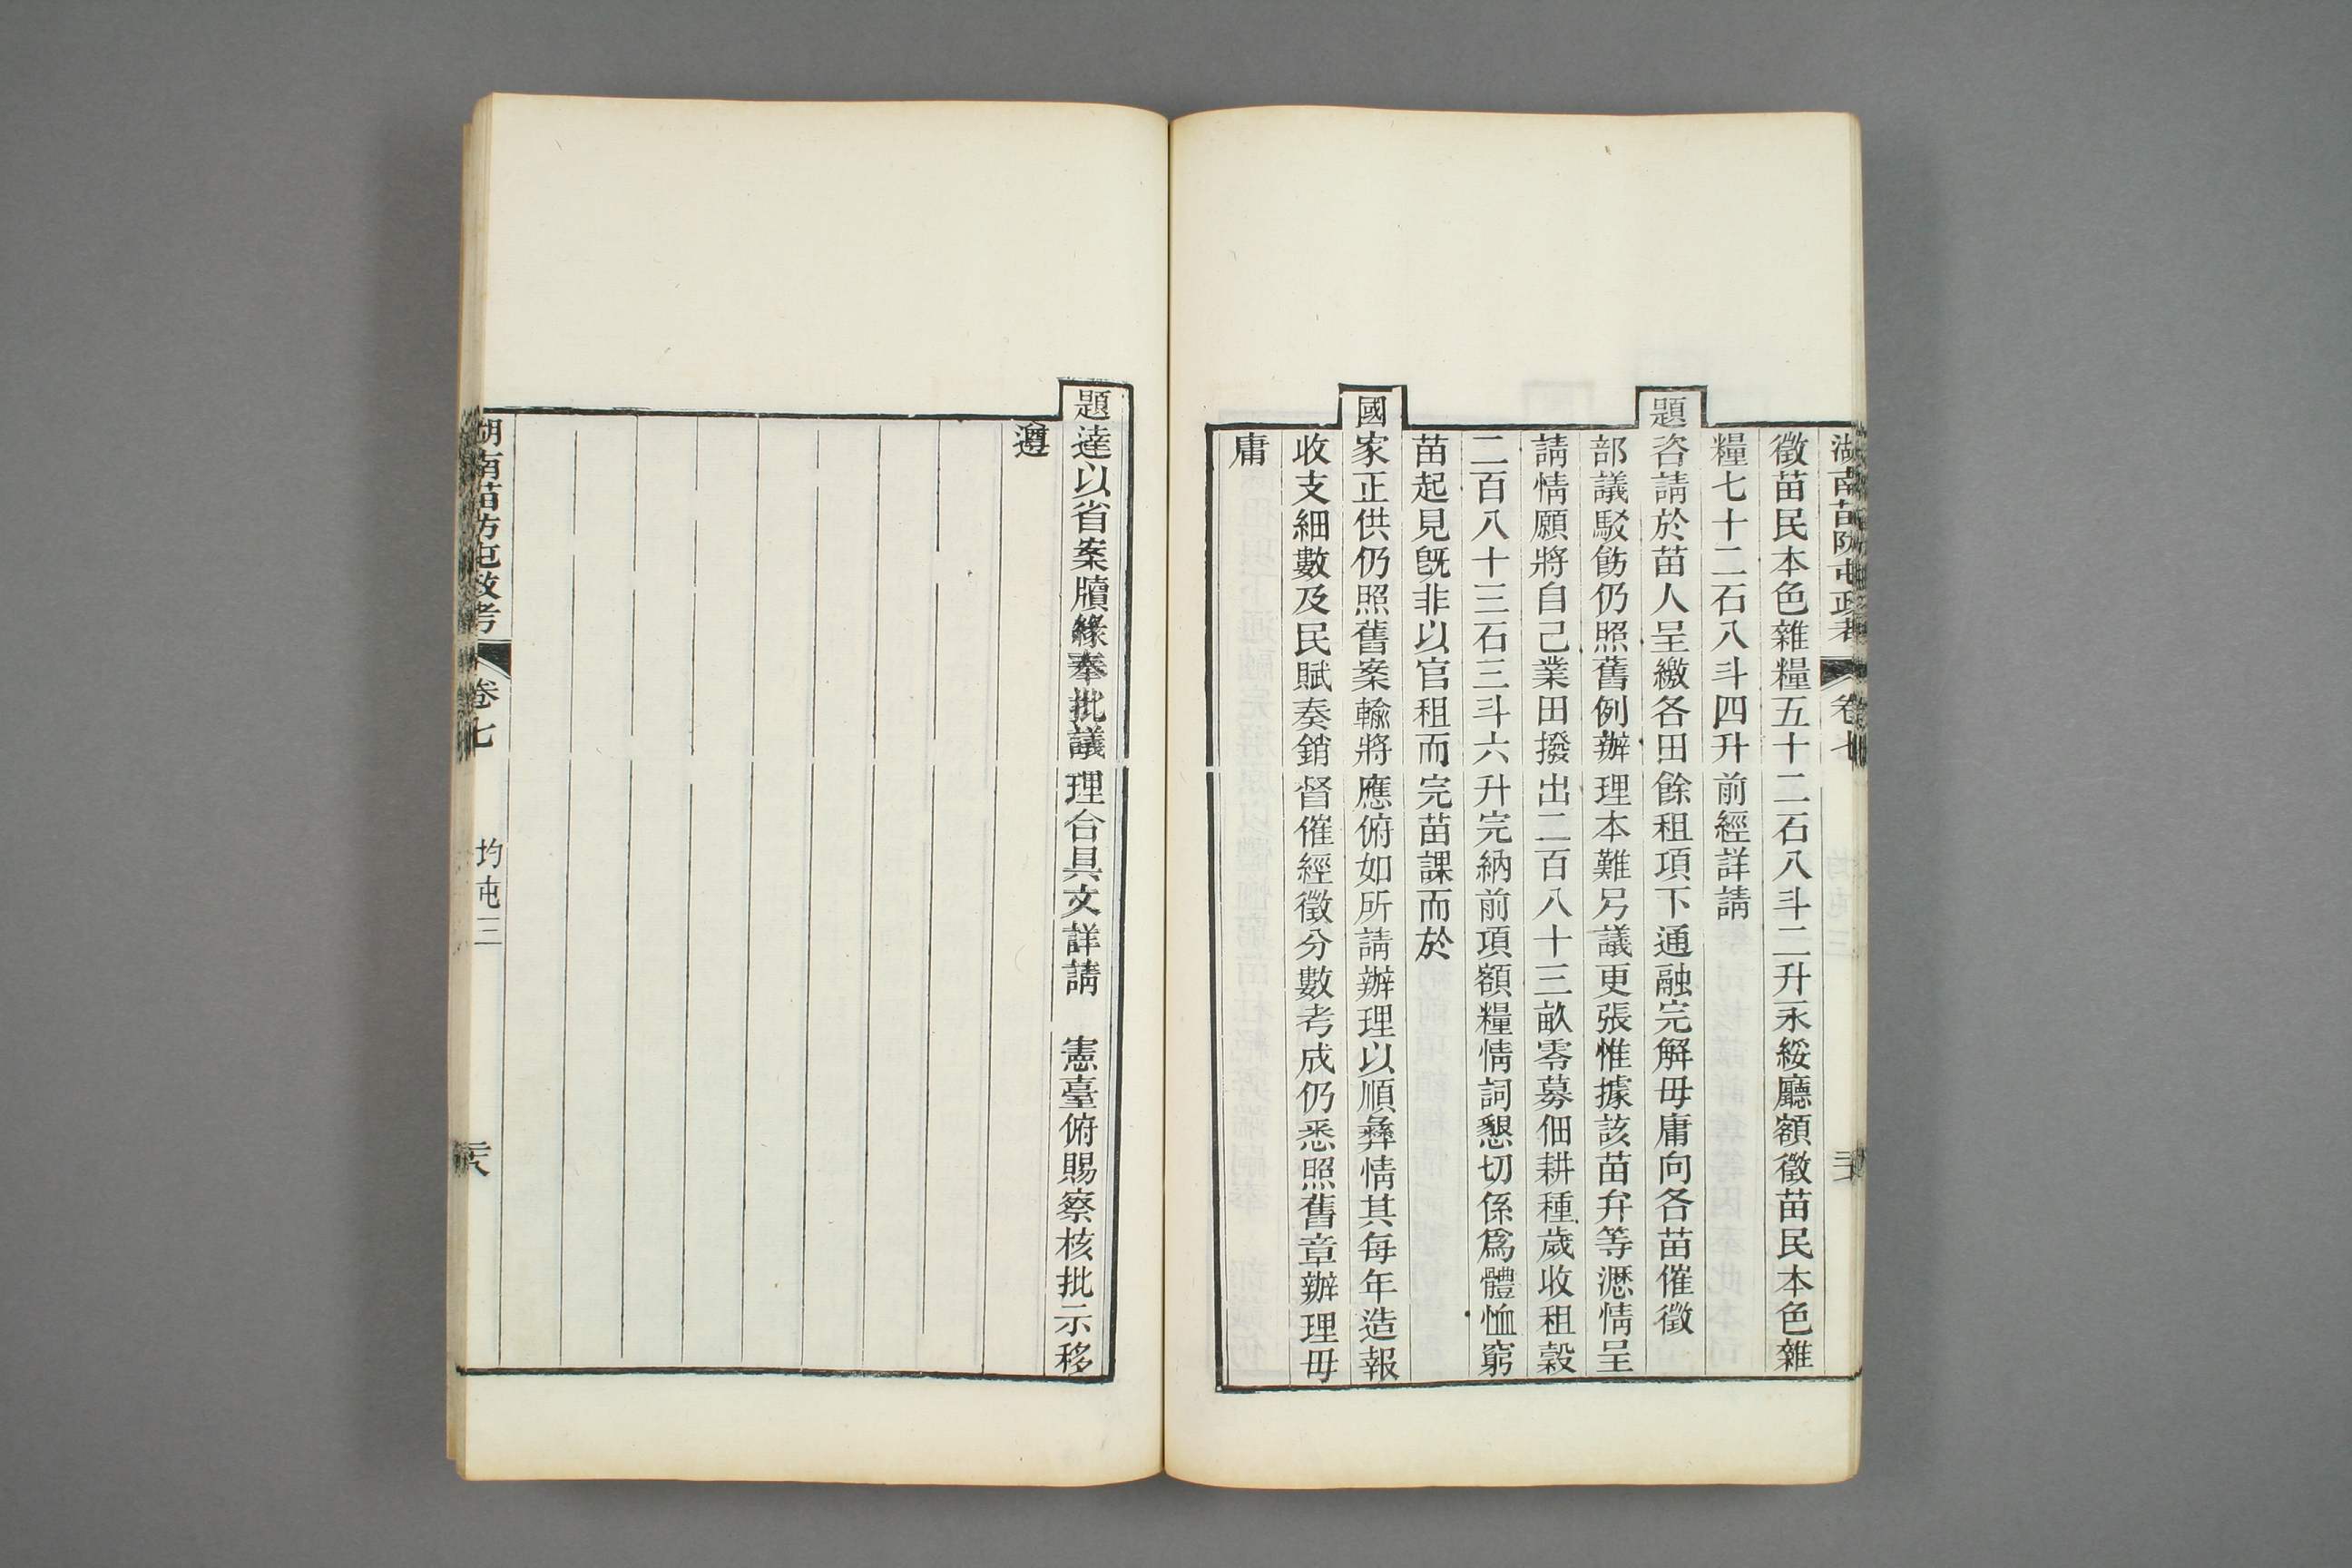 湖南苗防屯政考 卷七
徵苗民本色雜糧五十二石八斗二升永綏廳額徵苗民本色雜
糧七十二石八斗四升前經詳請
題咨請於苗人呈繳各田餘租項下通融完解毋庸向各苗催徵
部議駁飭仍照舊例辦理本難另議更張惟據該苗弁等瀝情呈
請情願將自己業田撥出二百八十三畝零募佃耕種歲收租穀
二百八十三石三斗六升完納前項額糧情詞懇切係爲體恤窮
苗起見旣非以官租而完苗課而於
國家正供仍照舊案輸將應俯如所請辦理以順彝情其每年造報
收支細數及民賦奏銷督催經徵分數考成仍悉照舊章辦理毋
庸
題達以省案牘緣奉批議理合具文詳請 憲臺俯賜察核批示移
遵
湖南苗防屯政考 卷七 均屯三